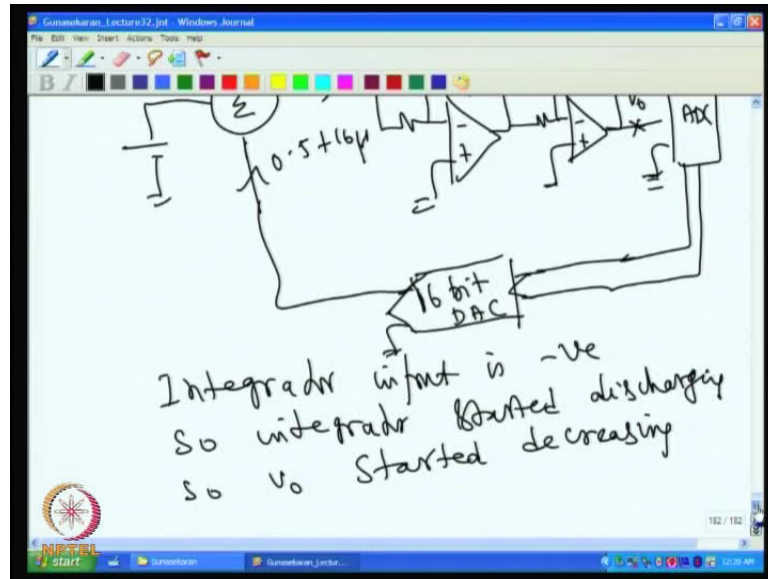 Gunasekaran_Lecture32.jnt - Windows Journal
File Edit View Insert Actions Tools Help
B I
Σ
0.5+16μ
-
+
-
+
V0
ADC
16 bit
DAC
Integrador input is -ve
so integrador started discharging
so v0 started decreasing
182 / 182
NPTEL
start
Gunasekaran
Gunasekaran_Lectur...
12:20 AM